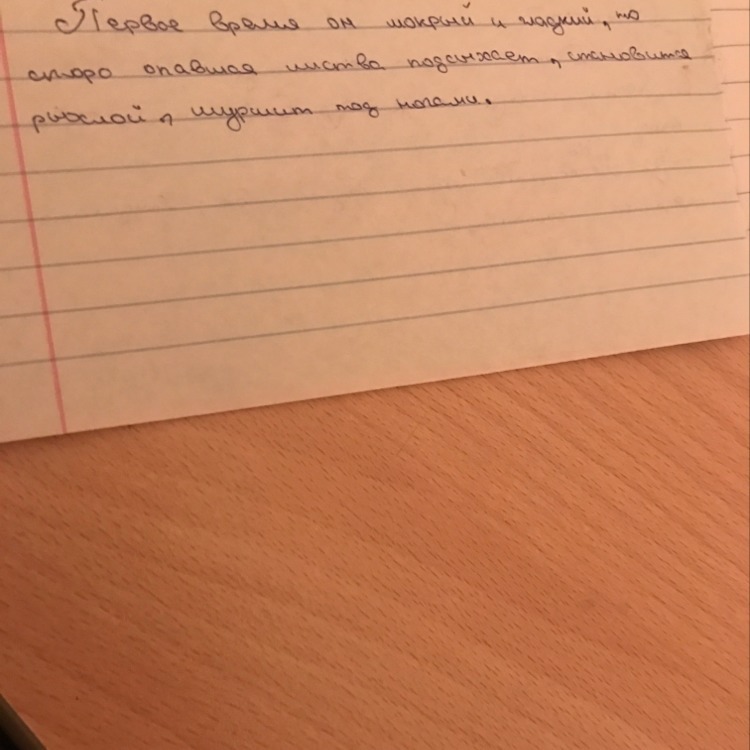 Первое время он мокрый и гладкий, но
скоро опавшая листва подсыхает, становится
рыхлой, шуршит под ногами.